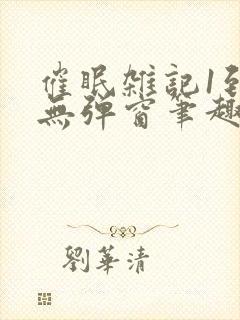 催眠雑記1到
無弹窗筆趣
劉華清